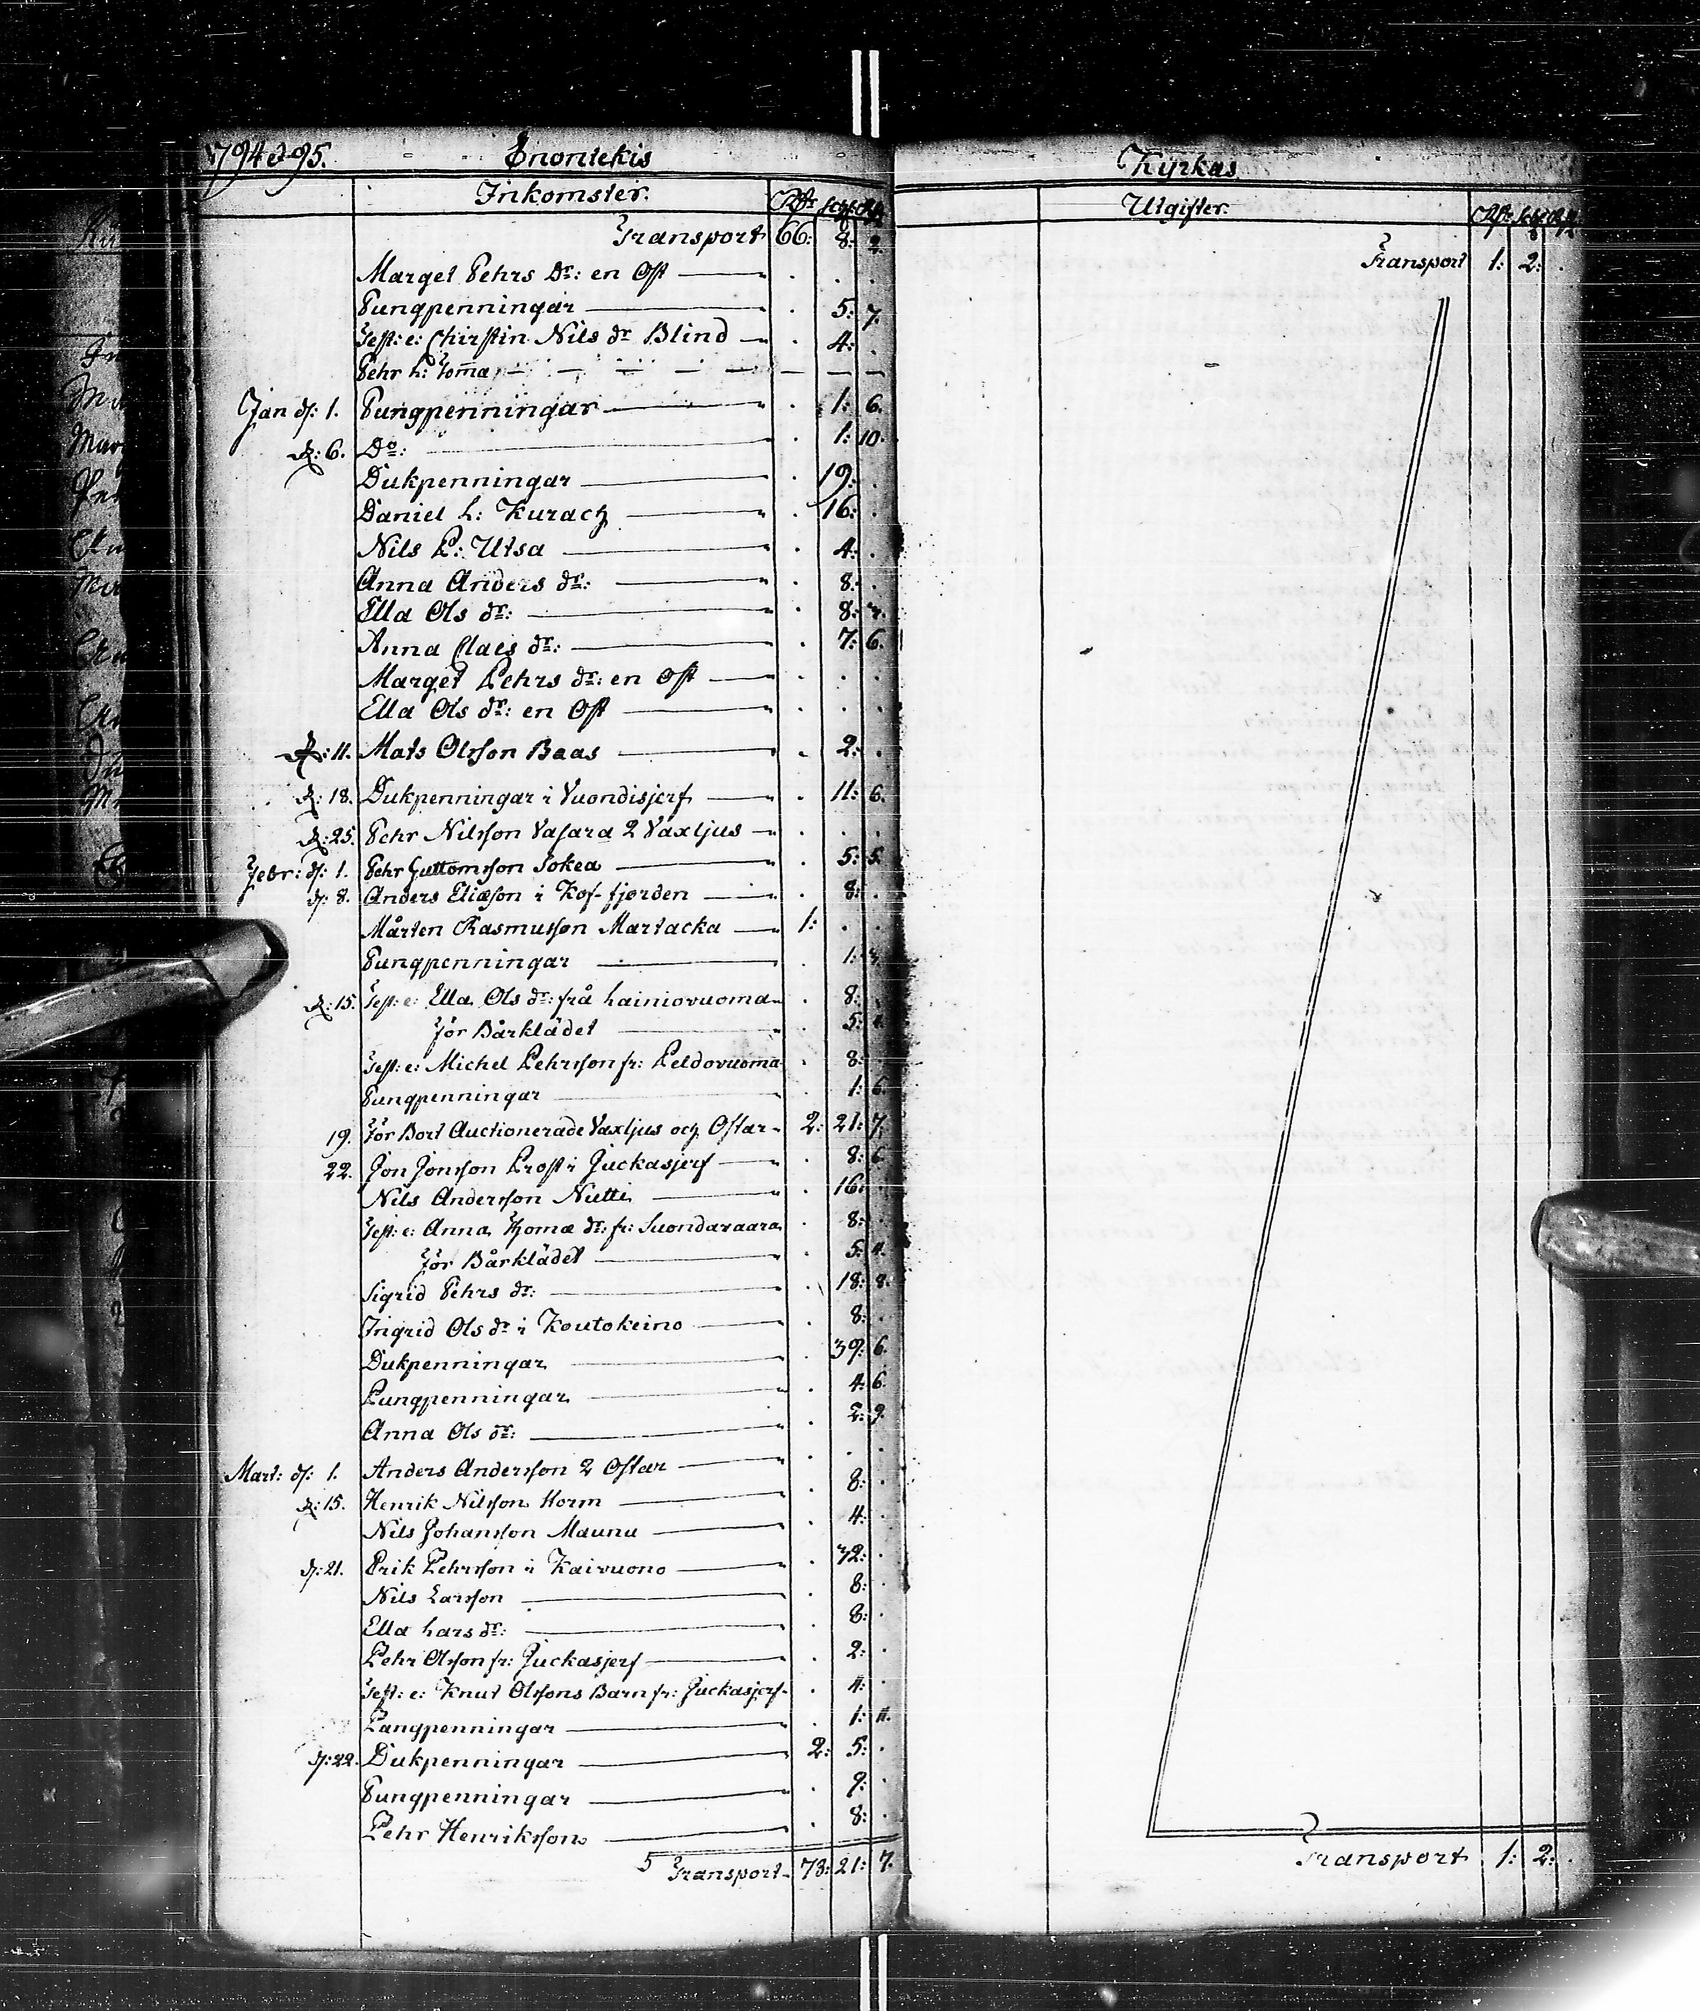 1794 & 95. Enontekis
Inkomster. Rdr sch: rst:
Transport 66: 8: 2.
Marget Pehrs dr: en Ost
Pungpenningar 5: 7.
Test: e: Chirstin Nils dr Blind 4:
Pehr h: Tom̄a
Jan d: 1. Pungpenningar 1: 6.
d: 6. Do: 1: 10.
Dukpenningar 19:
Daniel h: Kurack 16:
Nils P: Utsa 4:
Anna Anders dr: 8:
Ella Ols dr: 8:
Anna Claes dr: 7: 6.
Marget Pehrs dr: en Ost
Ella Ols dr: en Ost
d: 11. Mats Olsson Baas 2:
d: 18. Dukpenningar i Vuondisjerf 11: 6.
d: 25. Pehr Nilsson Vasara 2 Vaxljus
Febr: d: 1. Pehr Guttomsson Sokea 5: 5.
d: 8. Anders Eliæson i Kof-fjorden 8:
Mårten Rasmusson Martacka 1:
Pungpenningar 1:
d: 15. Test: e: Ella Ols dr: frå Lainiovuoma 8:
för Bårklädet 5: 4.
Test: e: Michel Pehrsson fr: Peldovuoma 8:
Pungpenningar 1: 6.
19. För Bort Auctionerade Vaxljus och Ostar 2: 21: 7.
22. Jon Jonsson Prost i Juckasjerf 8: 6.
Nils Andersson Nutti 16:
Test: e: Anna Thomæ dr: fr: Suondavaara 8:
för Bårklädet 5: 4.
Sigrid Pehrs dr: 18: 8.
Ingrid Ols dr i Koutokeino 8:
Dukpenningar 39: 6.
Pungpenningar 4: 6.
Anna Ols dr: 2: 9.
Mart: d: 1. Anders Andersson 2 Ostar
d: 15. Henrik Nilsson Horm 8:
Nils Johansson Maunu 4:
d: 21. Erik Pehrsson i Kaivuono 32:
Nils Larsson 8:
Ella Lars dr: 8:
Pehr Olsson fr: Juckasjerf 2:
Test: e: Knut Olssons Barn fr: Juckasjerf 4:
Pungpenningar 1: 11.
d: 22. Dukpenningar 2: 5:
Pungpenningar 9:
Pehr Henriksson 8:
5 Transport 78: 21: 7.
Kyrkas
Utgifter. Rdr sch: rst:
Transport 1: 2:
Transport 1: 2: